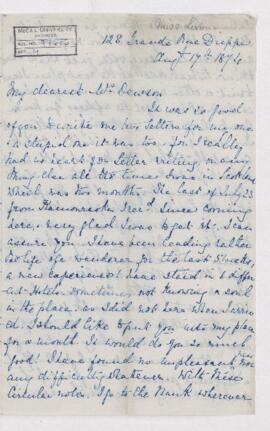 Miss
McGILL UNIVERSITY
ARCHIVES
ACC. NO.
128 Grande Rue Dieppe
Augt 17th 1874
My dearest Mrs Dawson
It was so good
of you to write me two letters for my one
& stupid one it was too. for I really
had no heart for letter writing or any
thing else all the time I was in Scotland
which was two months. The last of July 23
from Kamouraska I recd. since coming
here, & very glad I was to get it. I can
assure you. I have been leading rather
a wanderer for the last 5 weeks
a new experience I have staid in 6 differ
ent Hotels. sometimes not knowing a soul
in the place, as I did not here when I arriv
ed. I should like to put you into my place
for a month. It would do you so much
good! I have found no unpleasantness
any difficulty whatever. With these
Circular notes, I go to the Bank wherever